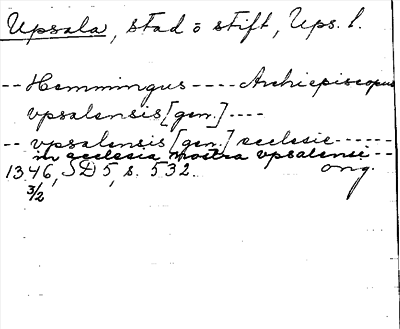 Upsala, stad o stift, Ups. l.
-- Hemmingus ---- Archiepiscopus
vpsalensis [gen.] ----
-- vpsalensis [gen.] ecclesie ------
in ecclesia nostra vpsalensi --
1346, SD 5, s. 532. orig.
3/2